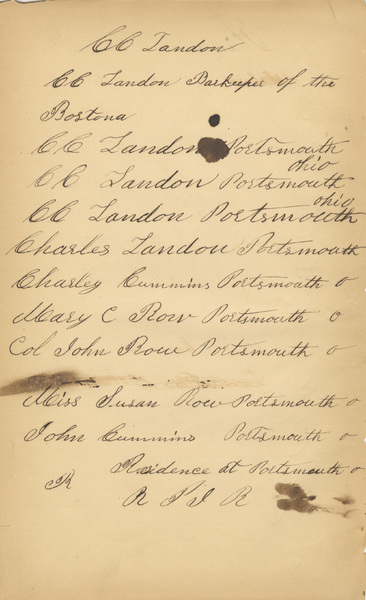 CC Landon
CC Landon Barkeeper of the
Bostona
CC Landon Portsmouth
ohio
CC Landon Portsmouth
ohio
CC Landon Portsmouth
Charles Landon Portsmouth
Charley Cummins Portsmouth o
Mary C Row Portsmouth o
Col John Row Portsmouth o
Miss Susan Row Portsmouth o
John Cummins Portsmouth o
Residence at Portsmouth o
R
R
R